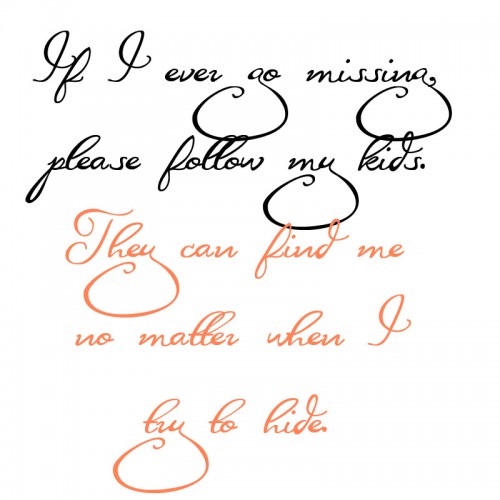 If I ever go missing,
please follow my kids.
They can find me
no matter when I
try to hide.